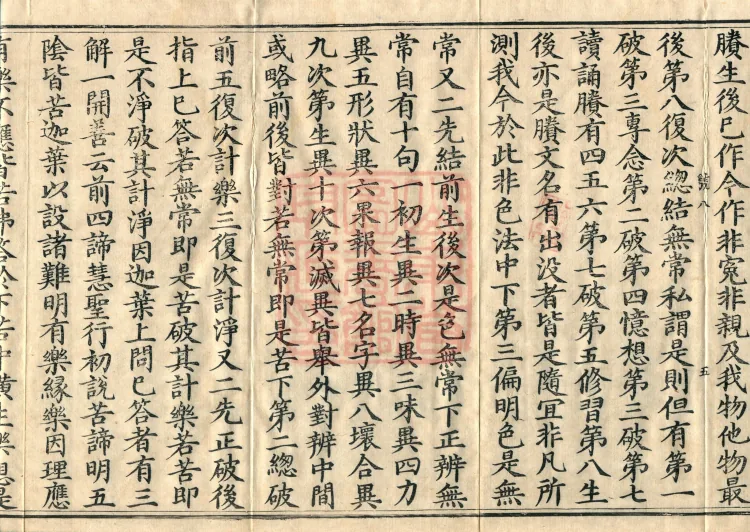 賸生後已作今作非寃非親及我物他物最
號八
五
後第八復次緫結無常私謂是則但有第一
破第三專念第二破第四憶想第三破第七
讀誦賸有四五六第七破第五修習第八生
後亦是賸文名有出没者皆是隨冝非凡所
測我今於此非色法中下第三偏明色是無
常又二先結前生後次是色無常下正辨無
常自有十句一初生異二時異三味異四力
異五形狀異六果報異七名字異八壞合異
九次第生異十次第滅異皆舉外對辨中間
或略前後皆對若無常即是苦下第二緫破
前五復次計樂三復次計淨又二先正破後
指上已答若無常即是苦破其計樂若苦即
是不淨破其計淨因迦葉上問已答者有三
解一開善云前四諦慧聖行初說苦諦明五
陰皆苦迦葉以設諸難明有樂緣樂因理應
有樂不應皆苦佛答於下苦中橫生樂想是